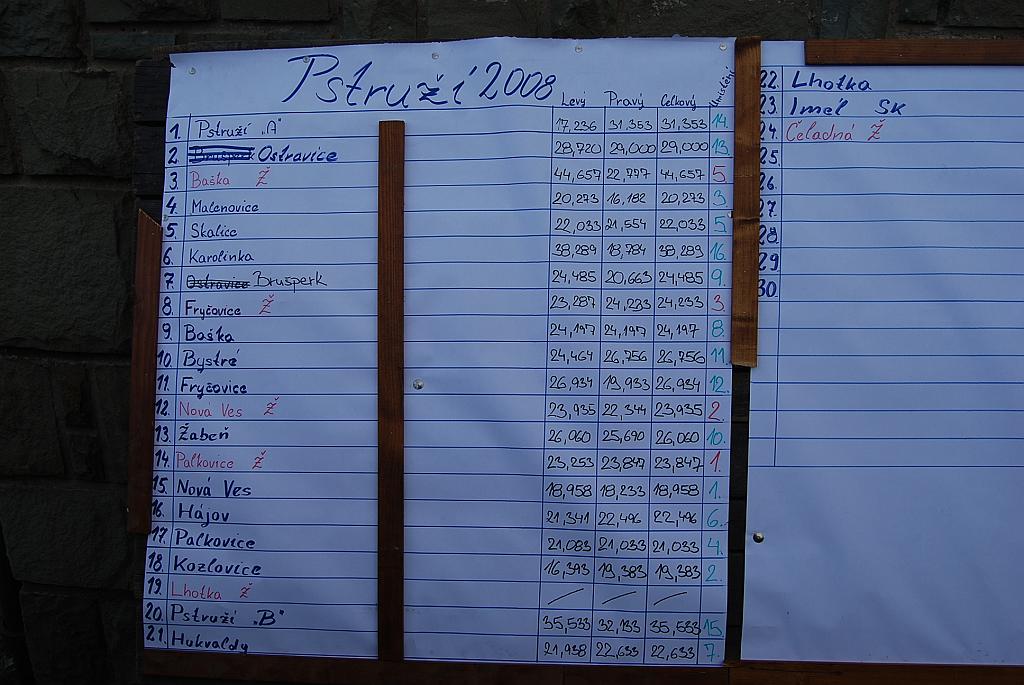 Pstruží 2008 Levý Pravý Celkový Umístění
1. Pstruží „A" 17,236 31,353 31,353 14.
2. Ostravice 28,720 29,000 29,000 13.
3. Baška Ž 44,657 22,777 44,657 5
4. Malenovice 20,273 16,182 20,273 3.
5. Skalice 22,033 21,554 22,033 5.
6. Karolinka 38,289 18,784 38,289 16.
7. Ostravice Brušperk 24,485 20,663 24,485 9.
8. Fryčovice Ž 23,287 24,233 24,233 3.
9. Baška 24,197 24,197 24,197 8.
10. Bystré 24,464 26,756 26,756 11.
11. Fryčovice 26,934 19,933 26,934 12.
12. Nová Ves Ž 23,935 22,344 23,935 2.
13. Žabeň 26,060 25,690 26,060 10.
14. Palkovice Ž 23,253 23,847 23,847 1.
15. Nová Ves 18,958 18,233 18,958 1.
16. Hájov 21,341 22,496 22,496 6.
17. Palkovice 21,083 21,033 21,033 4.
18. Kozlovice 16,393 19,383 19,383 2.
19. Lhotka Ž / / /
20. Pstruží „B" 35,533 32,133 35,533 15.
21. Hukvaldy 21,938 22,633 22,633 7.
22. Lhotka
23. Imel SK
24. Čeladná Ž
25.
26.
27.
28.
29
30